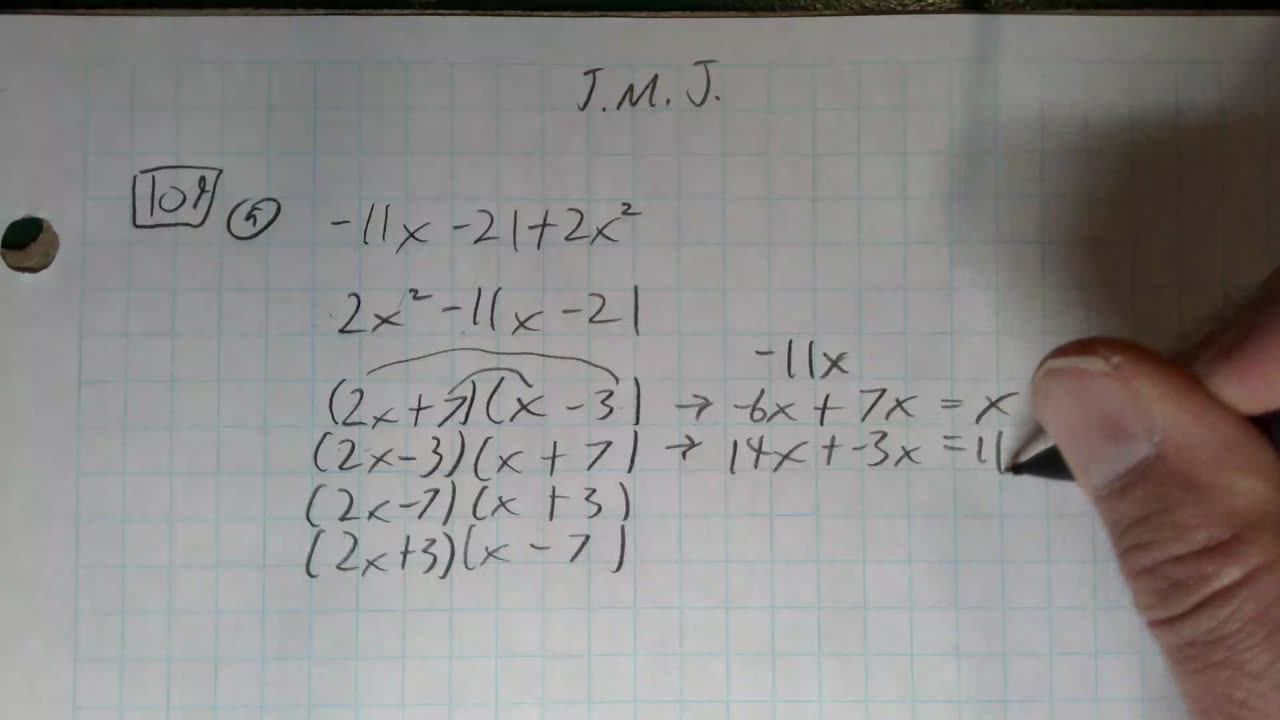 J.M.J.
-11x -21+2x²
2x² -11x -21
-11x
(2x+7)(x -3) → -6x + 7x = x
(2x-3)(x +7) → 14x + -3x = 11
(2x-7)(x +3)
(2x+3)(x -7)